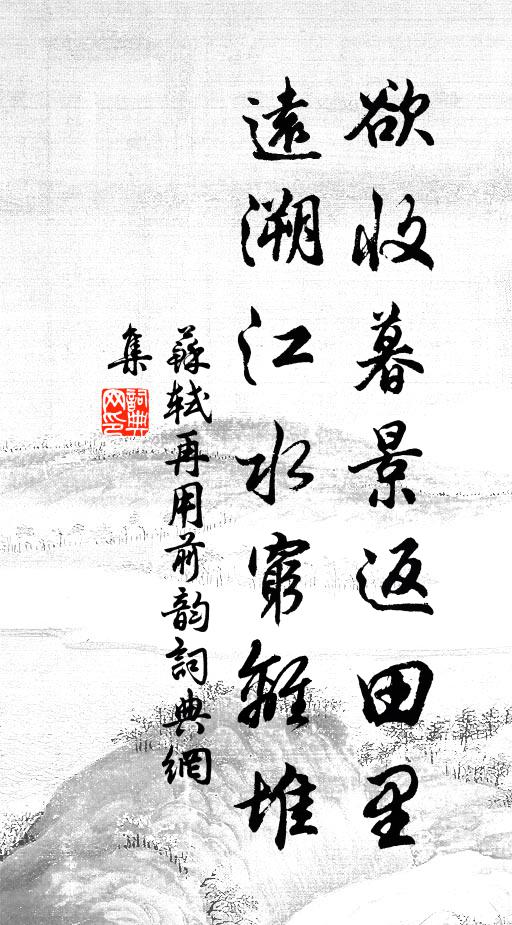 欲收暮景返田里
遠溯江水窮離堆
蘇軾再用前韵詞典網
集
詞典網印